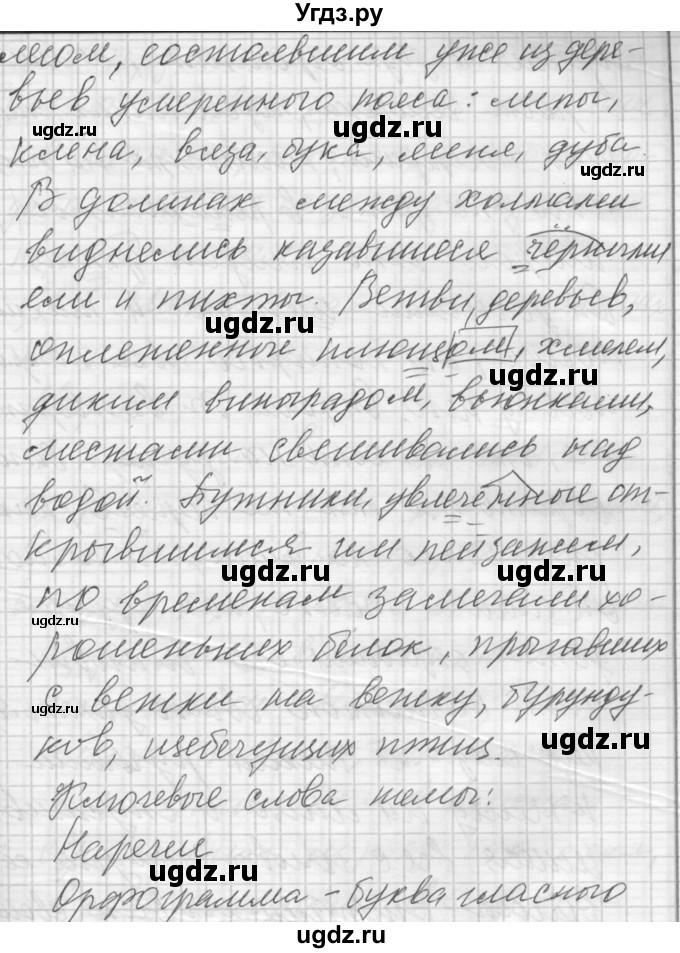 Угдз.ру
лесом, состоявшим уже из дере-
вьев умеренного пояса: липы,
ugdz.ru ugdz.ru
клена, вяза, бука, меня, дуба.
ugdz.ru
В долинах между холмами
виднелись казавшиеся чёрными
ели и пихты. Ветви деревьев,
ugdz.ru
оплетенные плющом, хмелем,
ugdz.ru
диким виноградом, вьюнками,
местами свешивались над
водой. Путники, увлечённые от-
крывшимся им пейзажем,
ugdz.ru ugdz.ru
по временам замечали хо-
ugdz.ru
рошеньких белок, прыгавших
с ветки на ветку, бурунду-
ugdz.ru
ков, щебечущих птиц.
ugdz.ru
Ключевые слова темы:
Наречие
ugdz.ru
Орфограмма - буква гласного
ugdz.ru